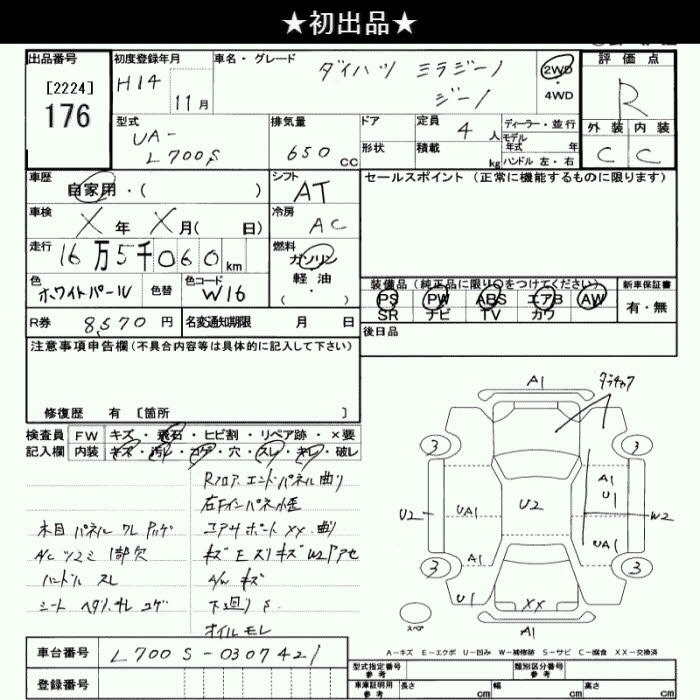 ★初出品★
出品番号
[2224]
176
初度登録年月
H14
11月
車名・グレード
ダイハツ ミラジーノ
ジーノ
2WD
・
4WD
評価点
R
外装 内装
C C
型式
UA-
L700S
排気量
650 CC
ドア
形状
定員
4人
積載
kg
ディーラー・並行
モデル
年式 年
ハンドル 左・右
車歴
自家用・( )
シフト
AT
セールスポイント (正常に機能するものに限ります)
車検
X年 X月( 日)
冷房
AC
走行
16万5千060km
燃料
ガソリン
軽・油
( )
色
ホワイトパール
色替
色コード
W16
装備品 (純正品に限り○をつけてください)
PS PW ABS エアB AW
SR ナビ TV カワ
新車保証書
有・無
R券
8,570円
名変通知期限 月 日
後日品
注意事項申告欄 (不具合内容等は具体的に記入して下さい)
修復歴 有 [箇所 ]
検査員
記入欄
FW キズ・飛石・ヒビ割・リペア跡・×要
内装 キズ・汚レ・コゲ・穴・スレ・キレ・破レ
Rフロア エンドパネル曲り
右Fインパネ
木目パネル ワレ
コアサポート XX 曲り
A/C ツマミ 1部欠
キズ E スリキズ W2
ハンドル スレ
A/W キズ
シート ヘタリ キレ コゲ
下廻り S
オイルモレ
A1
3
3
A1
U1
U2
UA1
U2
W2
A1
UA1
3
3
U1
XX
スペア
A1
A-キズ E-エクボ U-凹み W-補修跡 S-サビ C-腐食 XX-交換済
車台番号
L700S-0307421
登録番号
型式指定番号
参考
類別区分番号
参考
車庫証明用
参考
長さ cm
幅 cm
高さ cm